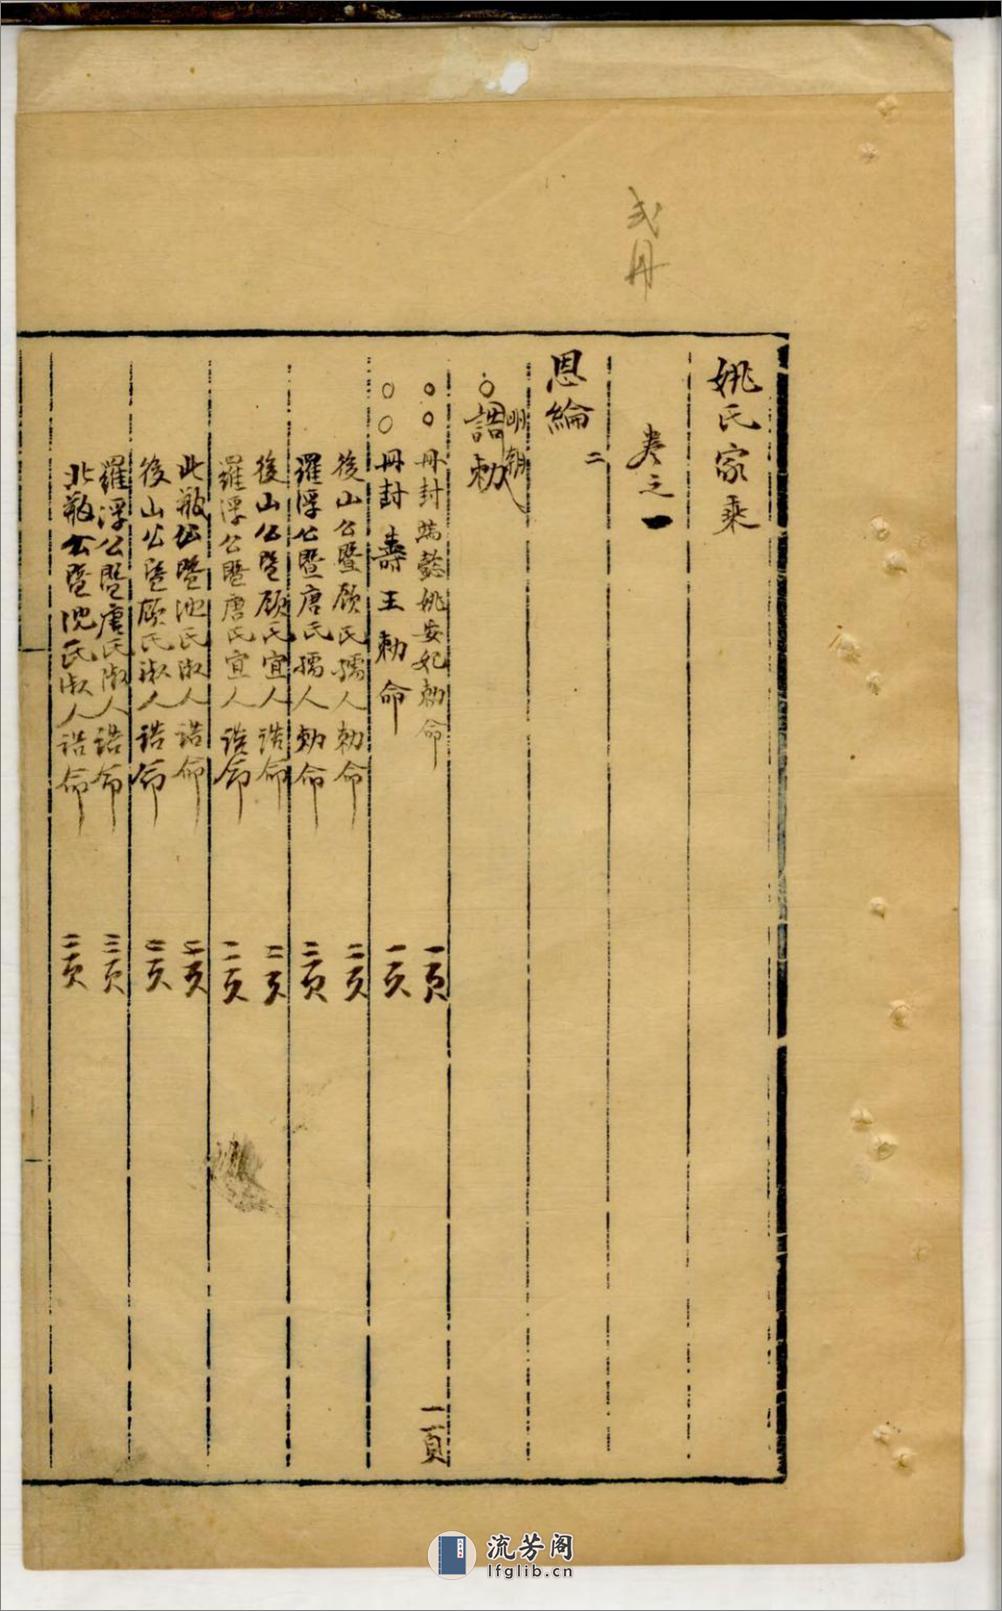 弍册
姚氏家乘
卷之一
恩綸二
明朝
○誥勅
○○冊封端懿姚安妃勅命 一頁 二頁
○○冊封壽王勅命 一頁
後山公暨顧氏孺人勅命 二頁
羅浮公暨唐氏孺人勅命 二頁
後山公暨顧氏宜人誥命 二頁
羅浮公暨唐氏宜人誥命 二頁
北山公暨沈氏淑人誥命 二頁
後山公暨顧氏淑人誥命 二頁
羅浮公暨唐氏淑人誥命 三頁
公暨沈氏淑人誥命 三頁
流芳阁
lfglib.cn